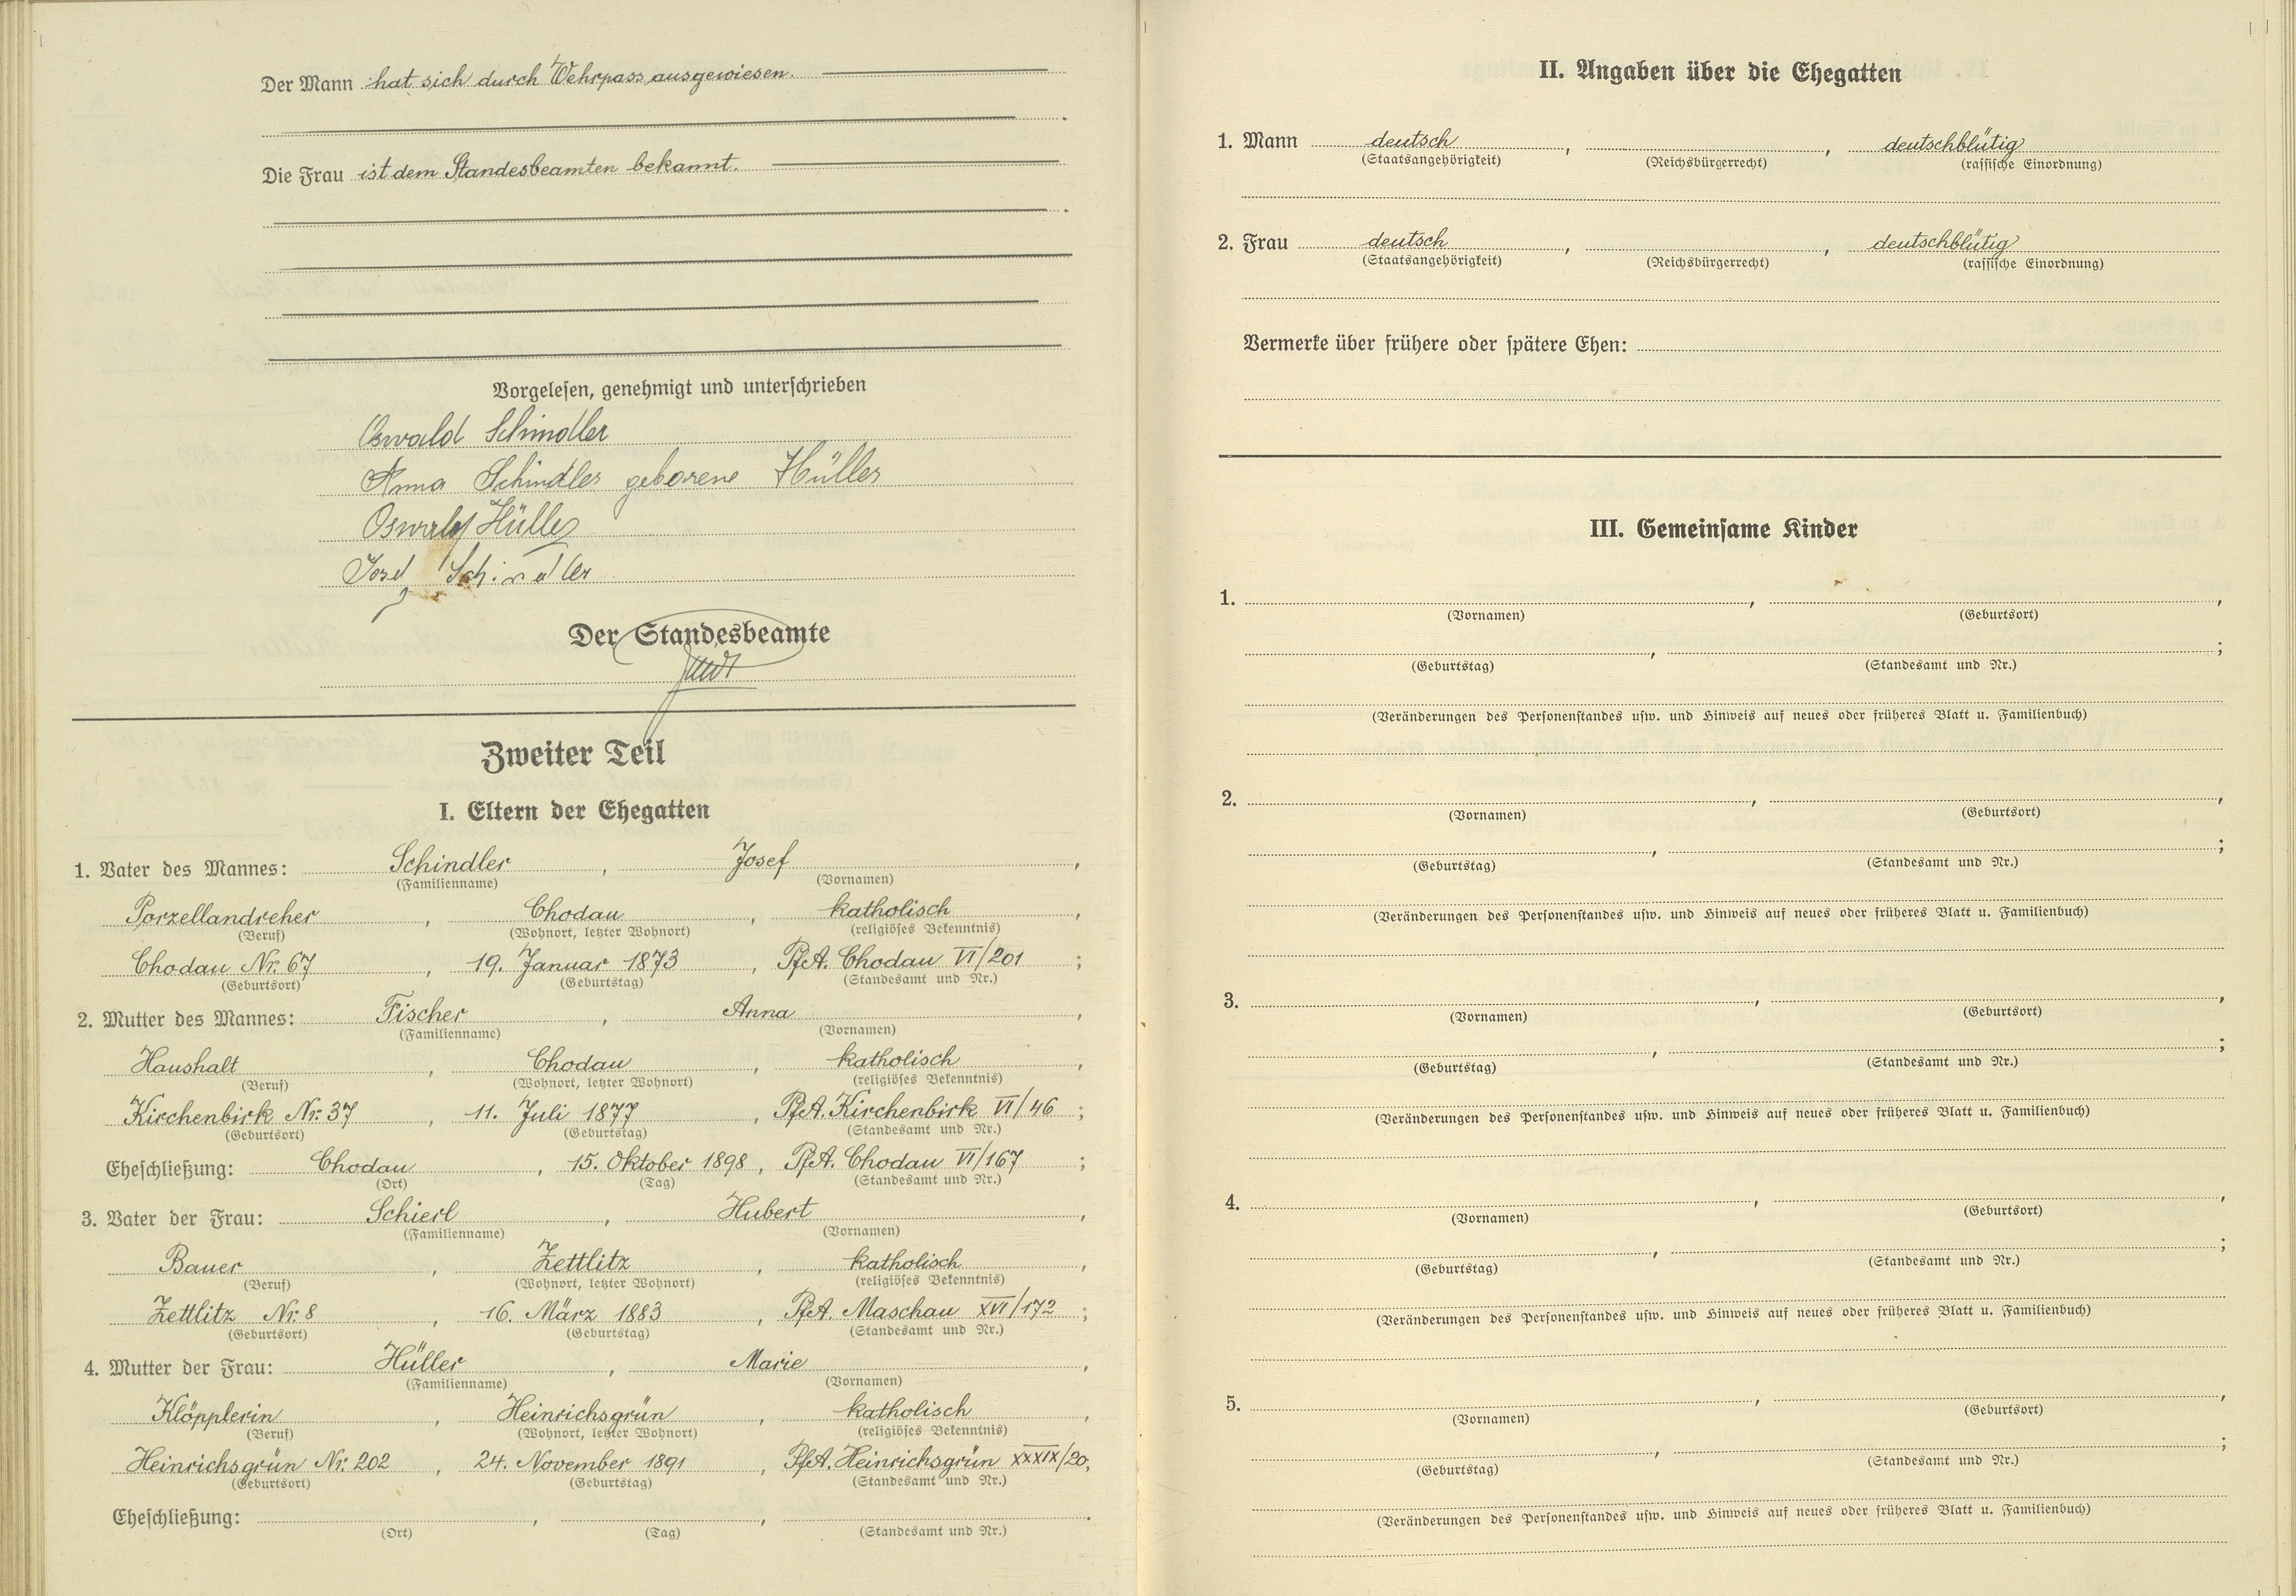 Der Mann hat sich durch Wehrpass ausgewiesen.
Die Frau ist dem Standesbeamten bekannt.
Vorgelesen, genehmigt und unterschrieben
Oswald Schindler
Anna Schindler geborene Hüller
Oswald Hüller
Josef Schindler
Der Standesbeamte
Zweiter Teil
I. Eltern der Ehegatten
1. Vater des Mannes: Schindler, Josef,
(Familienname) (Vornamen)
Porzellandreher, Chodau, katholisch,
(Beruf) (Wohnort, letzter Wohnort) (religiöses Bekenntnis)
Chodau Nr. 67, 19. Januar 1873, PfA. Chodau VI/201;
(Geburtsort) (Geburtstag) (Standesamt und Nr.)
2. Mutter des Mannes: Fischer, Anna,
(Familienname) (Vornamen)
Haushalt, Chodau, katholisch,
(Beruf) (Wohnort, letzter Wohnort) (religiöses Bekenntnis)
Kirchenbirk Nr. 37, 11. Juli 1877, PfA. Kirchenbirk VI/46;
(Geburtsort) (Geburtstag) (Standesamt und Nr.)
Eheschließung: Chodau, 15. Oktober 1898, PfA. Chodau VI/167;
(Ort) (Tag) (Standesamt und Nr.)
3. Vater der Frau: Schierl, Hubert,
(Familienname) (Vornamen)
Bauer, Zettlitz, katholisch,
(Beruf) (Wohnort, letzter Wohnort) (religiöses Bekenntnis)
Zettlitz Nr. 8, 16. März 1883, PfA. Maschau XVI/172;
(Geburtsort) (Geburtstag) (Standesamt und Nr.)
4. Mutter der Frau: Hüller, Marie,
(Familienname) (Vornamen)
Klöpplerin, Heinrichsgrün, katholisch,
(Beruf) (Wohnort, letzter Wohnort) (religiöses Bekenntnis)
Heinrichsgrün Nr. 202, 24. November 1891, PfA. Heinrichsgrün XXXIX/20,
(Geburtsort) (Geburtstag) (Standesamt und Nr.)
Eheschließung: , , .
(Ort) (Tag) (Standesamt und Nr.)
II. Angaben über die Ehegatten
1. Mann deutsch, , deutschblütig
(Staatsangehörigkeit) (Reichsbürgerrecht) (rassische Einordnung)
2. Frau deutsch, , deutschblütig
(Staatsangehörigkeit) (Reichsbürgerrecht) (rassische Einordnung)
Vermerke über frühere oder spätere Ehen:
III. Gemeinsame Kinder
1. , ,
(Vornamen) (Geburtsort)
, ;
(Geburtstag) (Standesamt und Nr.)
(Veränderungen des Personenstandes usw. und Hinweis auf neues oder früheres Blatt u. Familienbuch)
2. , ,
(Vornamen) (Geburtsort)
, ;
(Geburtstag) (Standesamt und Nr.)
(Veränderungen des Personenstandes usw. und Hinweis auf neues oder früheres Blatt u. Familienbuch)
3. , ,
(Vornamen) (Geburtsort)
, ;
(Geburtstag) (Standesamt und Nr.)
(Veränderungen des Personenstandes usw. und Hinweis auf neues oder früheres Blatt u. Familienbuch)
4. , ,
(Vornamen) (Geburtsort)
, ;
(Geburtstag) (Standesamt und Nr.)
(Veränderungen des Personenstandes usw. und Hinweis auf neues oder früheres Blatt u. Familienbuch)
5. , ,
(Vornamen) (Geburtsort)
, ;
(Geburtstag) (Standesamt und Nr.)
(Veränderungen des Personenstandes usw. und Hinweis auf neues oder früheres Blatt u. Familienbuch)